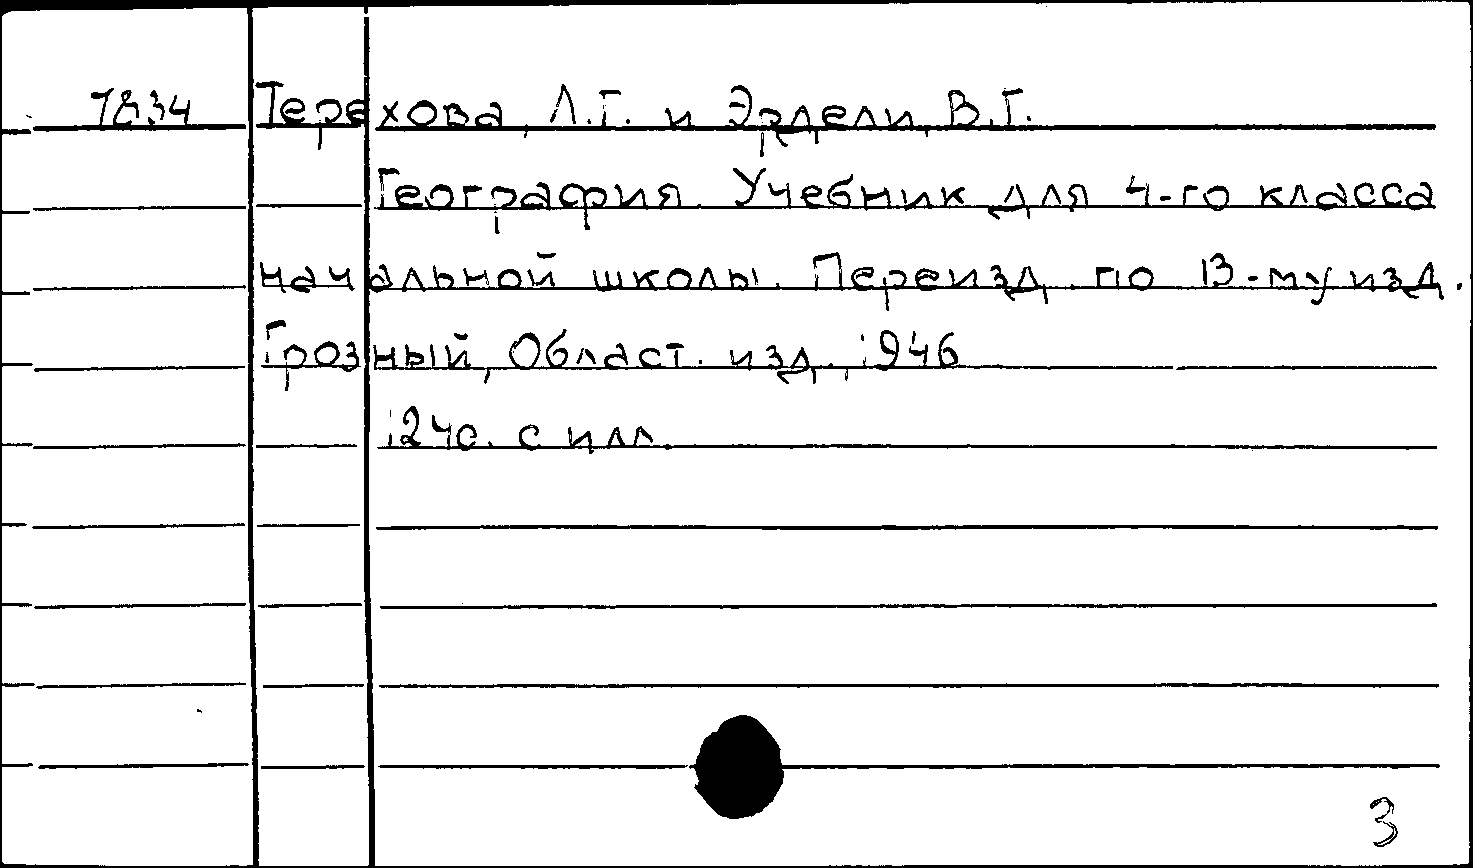 7834 Терехова, Л.Г. и Эрдели, В.Г.
География. Учебник для 4-го класса
начальной школы. Переизд. по 13-му изд.
Грозный, Област. изд., 1946
124с. с илл.
3